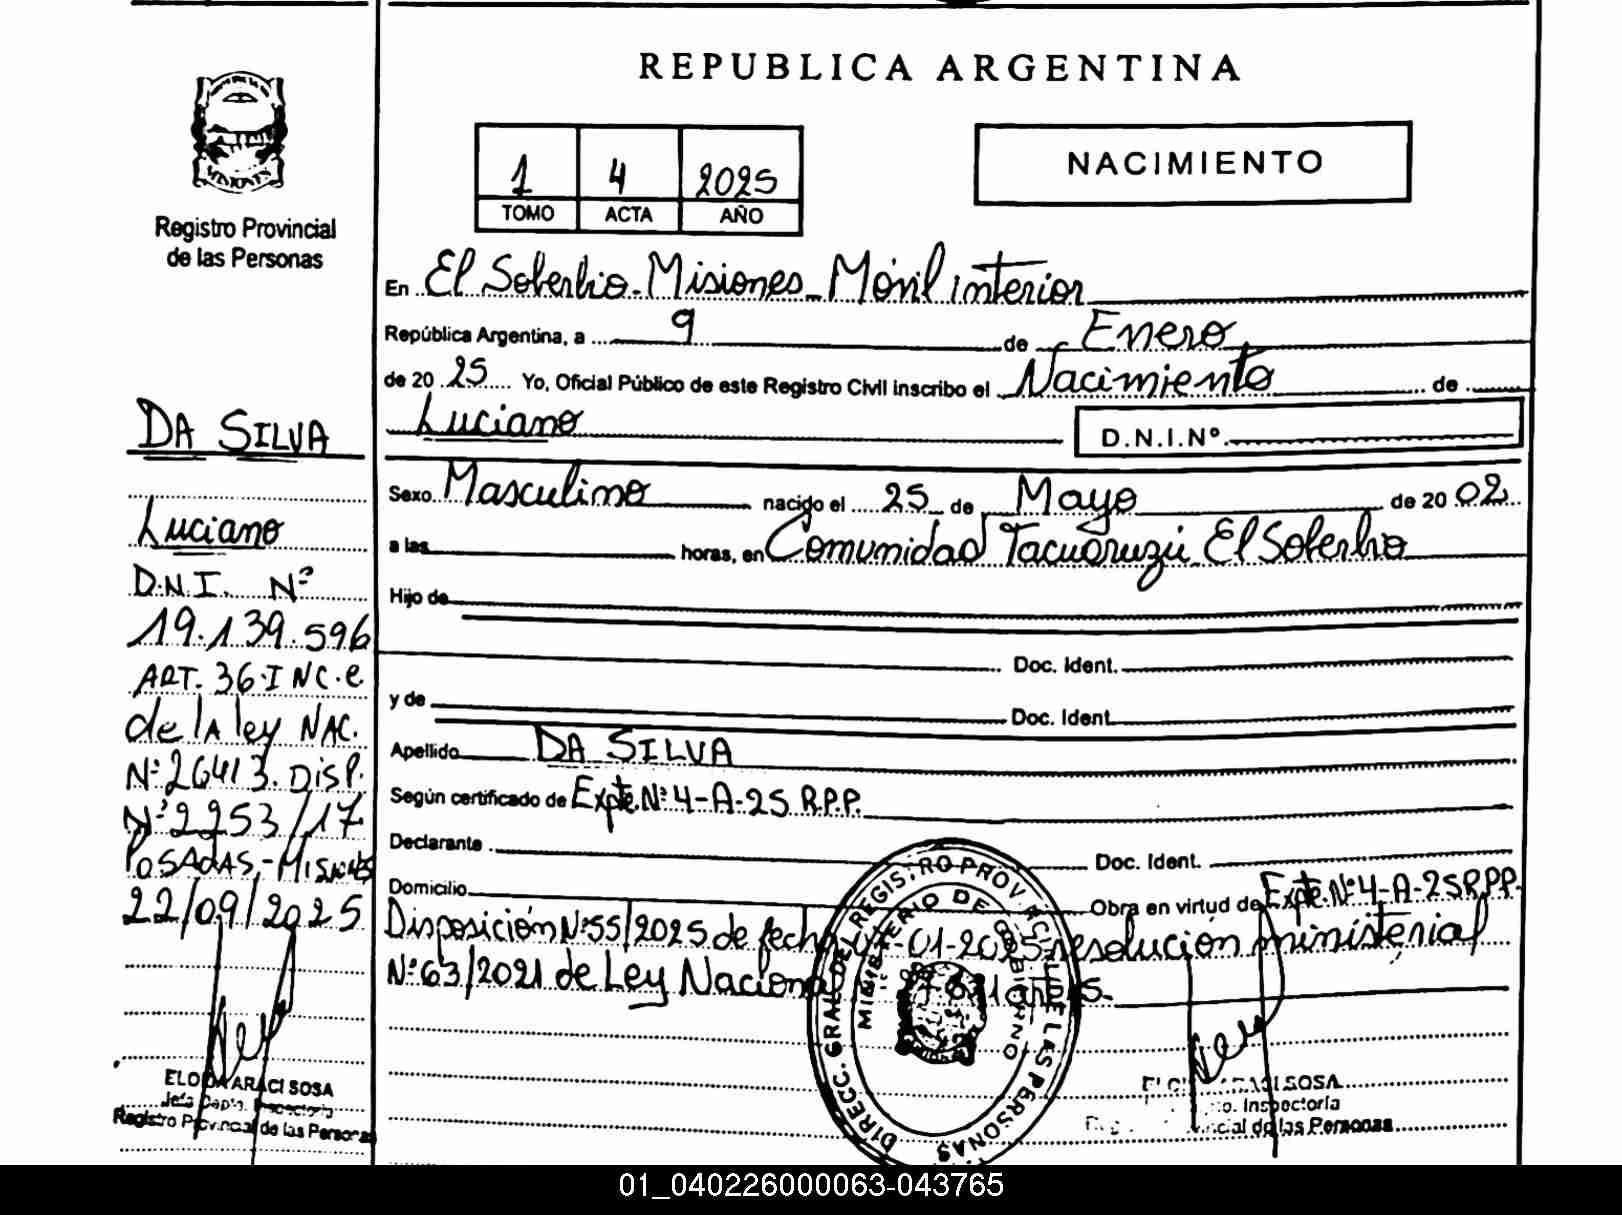 REPUBLICA ARGENTINA
MISIONES
Registro Provincial
de las Personas
1 4 2025
TOMO ACTA AÑO
NACIMIENTO
En El Soberbio - Misiones - Móvil interior
República Argentina, a 9 de Enero
de 20 25 Yo, Oficial Público de este Registro Civil inscribo el Nacimiento de
Luciano
D.N.I.Nº
Sexo Masculino nacido el 25 de Mayo de 20 02
a las horas, en Comunidad Tacuaruzú El Soberbio
Hijo de
Doc. Ident.
y de
Doc. Ident.
Apellido DA SILVA
Según certificado de Expte. Nº 4-A-25 R.P.P.
Declarante Doc. Ident.
Domicilio Obra en virtud de Expte. Nº 4-A-25 R.P.P.
Disposición Nº 55/2025 de fecha -01-2025 resolución ministerial
Nº 63/2021 de Ley Nacional
DA SILVA
Luciano
D.N.I. Nº
19.139.596
ART. 36 INC. e
de la ley NAC.
Nº 26413. DISP.
Nº 2253/17
POSADAS - MISIONES
22/09/2025
ARACI SOSA
Jefa Dapto. Inspectoría
Registro Provincial de las Personas
DIRECC. GRAL. DEL REGISTRO PROV. DE LAS PERSONAS
MINISTERIO DE GOBIERNO
SOSA
Inspectoría
de las Personas
01_040226000063-043765